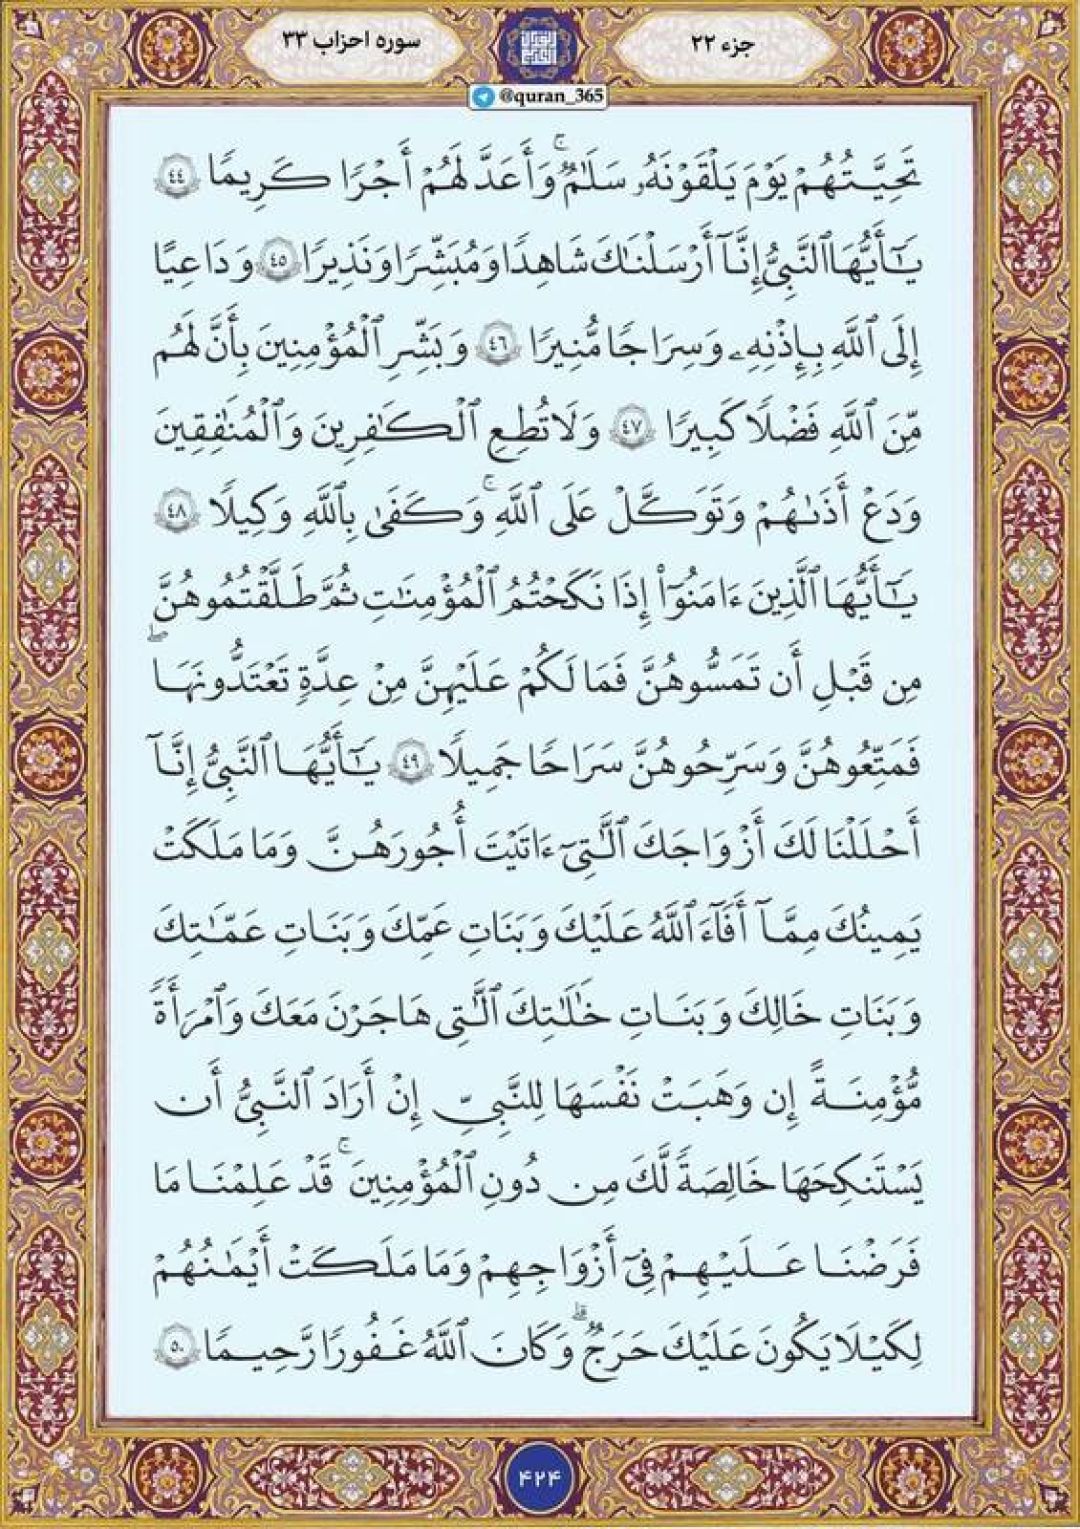 جزء ۲۲
سوره احزاب ۳۳
@quran_365
تَحِيَّتُهُمْ يَوْمَ يَلْقَوْنَهُۥ سَلَٰمٌۚ وَأَعَدَّ لَهُمْ أَجْرًا كَرِيمًا ٤٤
يَٰٓأَيُّهَا ٱلنَّبِيُّ إِنَّآ أَرْسَلْنَٰكَ شَاهِدًا وَمُبَشِّرًا وَنَذِيرًا ٤٥ وَدَاعِيًا
إِلَى ٱللَّهِ بِإِذْنِهِۦ وَسِرَاجًا مُّنِيرًا ٤٦ وَبَشِّرِ ٱلْمُؤْمِنِينَ بِأَنَّ لَهُم
مِّنَ ٱللَّهِ فَضْلًا كَبِيرًا ٤٧ وَلَا تُطِعِ ٱلْكَٰفِرِينَ وَٱلْمُنَٰفِقِينَ
وَدَعْ أَذَىٰهُمْ وَتَوَكَّلْ عَلَى ٱللَّهِۚ وَكَفَىٰ بِٱللَّهِ وَكِيلًا ٤٨
يَٰٓأَيُّهَا ٱلَّذِينَ ءَامَنُوٓا۟ إِذَا نَكَحْتُمُ ٱلْمُؤْمِنَٰتِ ثُمَّ طَلَّقْتُمُوهُنَّ
مِن قَبْلِ أَن تَمَسُّوهُنَّ فَمَا لَكُمْ عَلَيْهِنَّ مِنْ عِدَّةٍ تَعْتَدُّونَهَاۖ
فَمَتِّعُوهُنَّ وَسَرِّحُوهُنَّ سَرَاحًا جَمِيلًا ٤٩ يَٰٓأَيُّهَا ٱلنَّبِيُّ إِنَّآ
أَحْلَلْنَا لَكَ أَزْوَٰجَكَ ٱلَّٰتِيٓ ءَاتَيْتَ أُجُورَهُنَّ وَمَا مَلَكَتْ
يَمِينُكَ مِمَّآ أَفَآءَ ٱللَّهُ عَلَيْكَ وَبَنَاتِ عَمِّكَ وَبَنَاتِ عَمَّٰتِكَ
وَبَنَاتِ خَالِكَ وَبَنَاتِ خَٰلَٰتِكَ ٱلَّٰتِي هَاجَرْنَ مَعَكَ وَٱمْرَأَةً
مُّؤْمِنَةً إِن وَهَبَتْ نَفْسَهَا لِلنَّبِيِّ إِنْ أَرَادَ ٱلنَّبِيُّ أَن
يَسْتَنكِحَهَا خَالِصَةً لَّكَ مِن دُونِ ٱلْمُؤْمِنِينَۚ قَدْ عَلِمْنَا مَا
فَرَضْنَا عَلَيْهِمْ فِيٓ أَزْوَٰجِهِمْ وَمَا مَلَكَتْ أَيْمَٰنُهُمْ
لِكَيْلَا يَكُونَ عَلَيْكَ حَرَجٌۗ وَكَانَ ٱللَّهُ غَفُورًا رَّحِيمًا ٥٠
۴۲۴